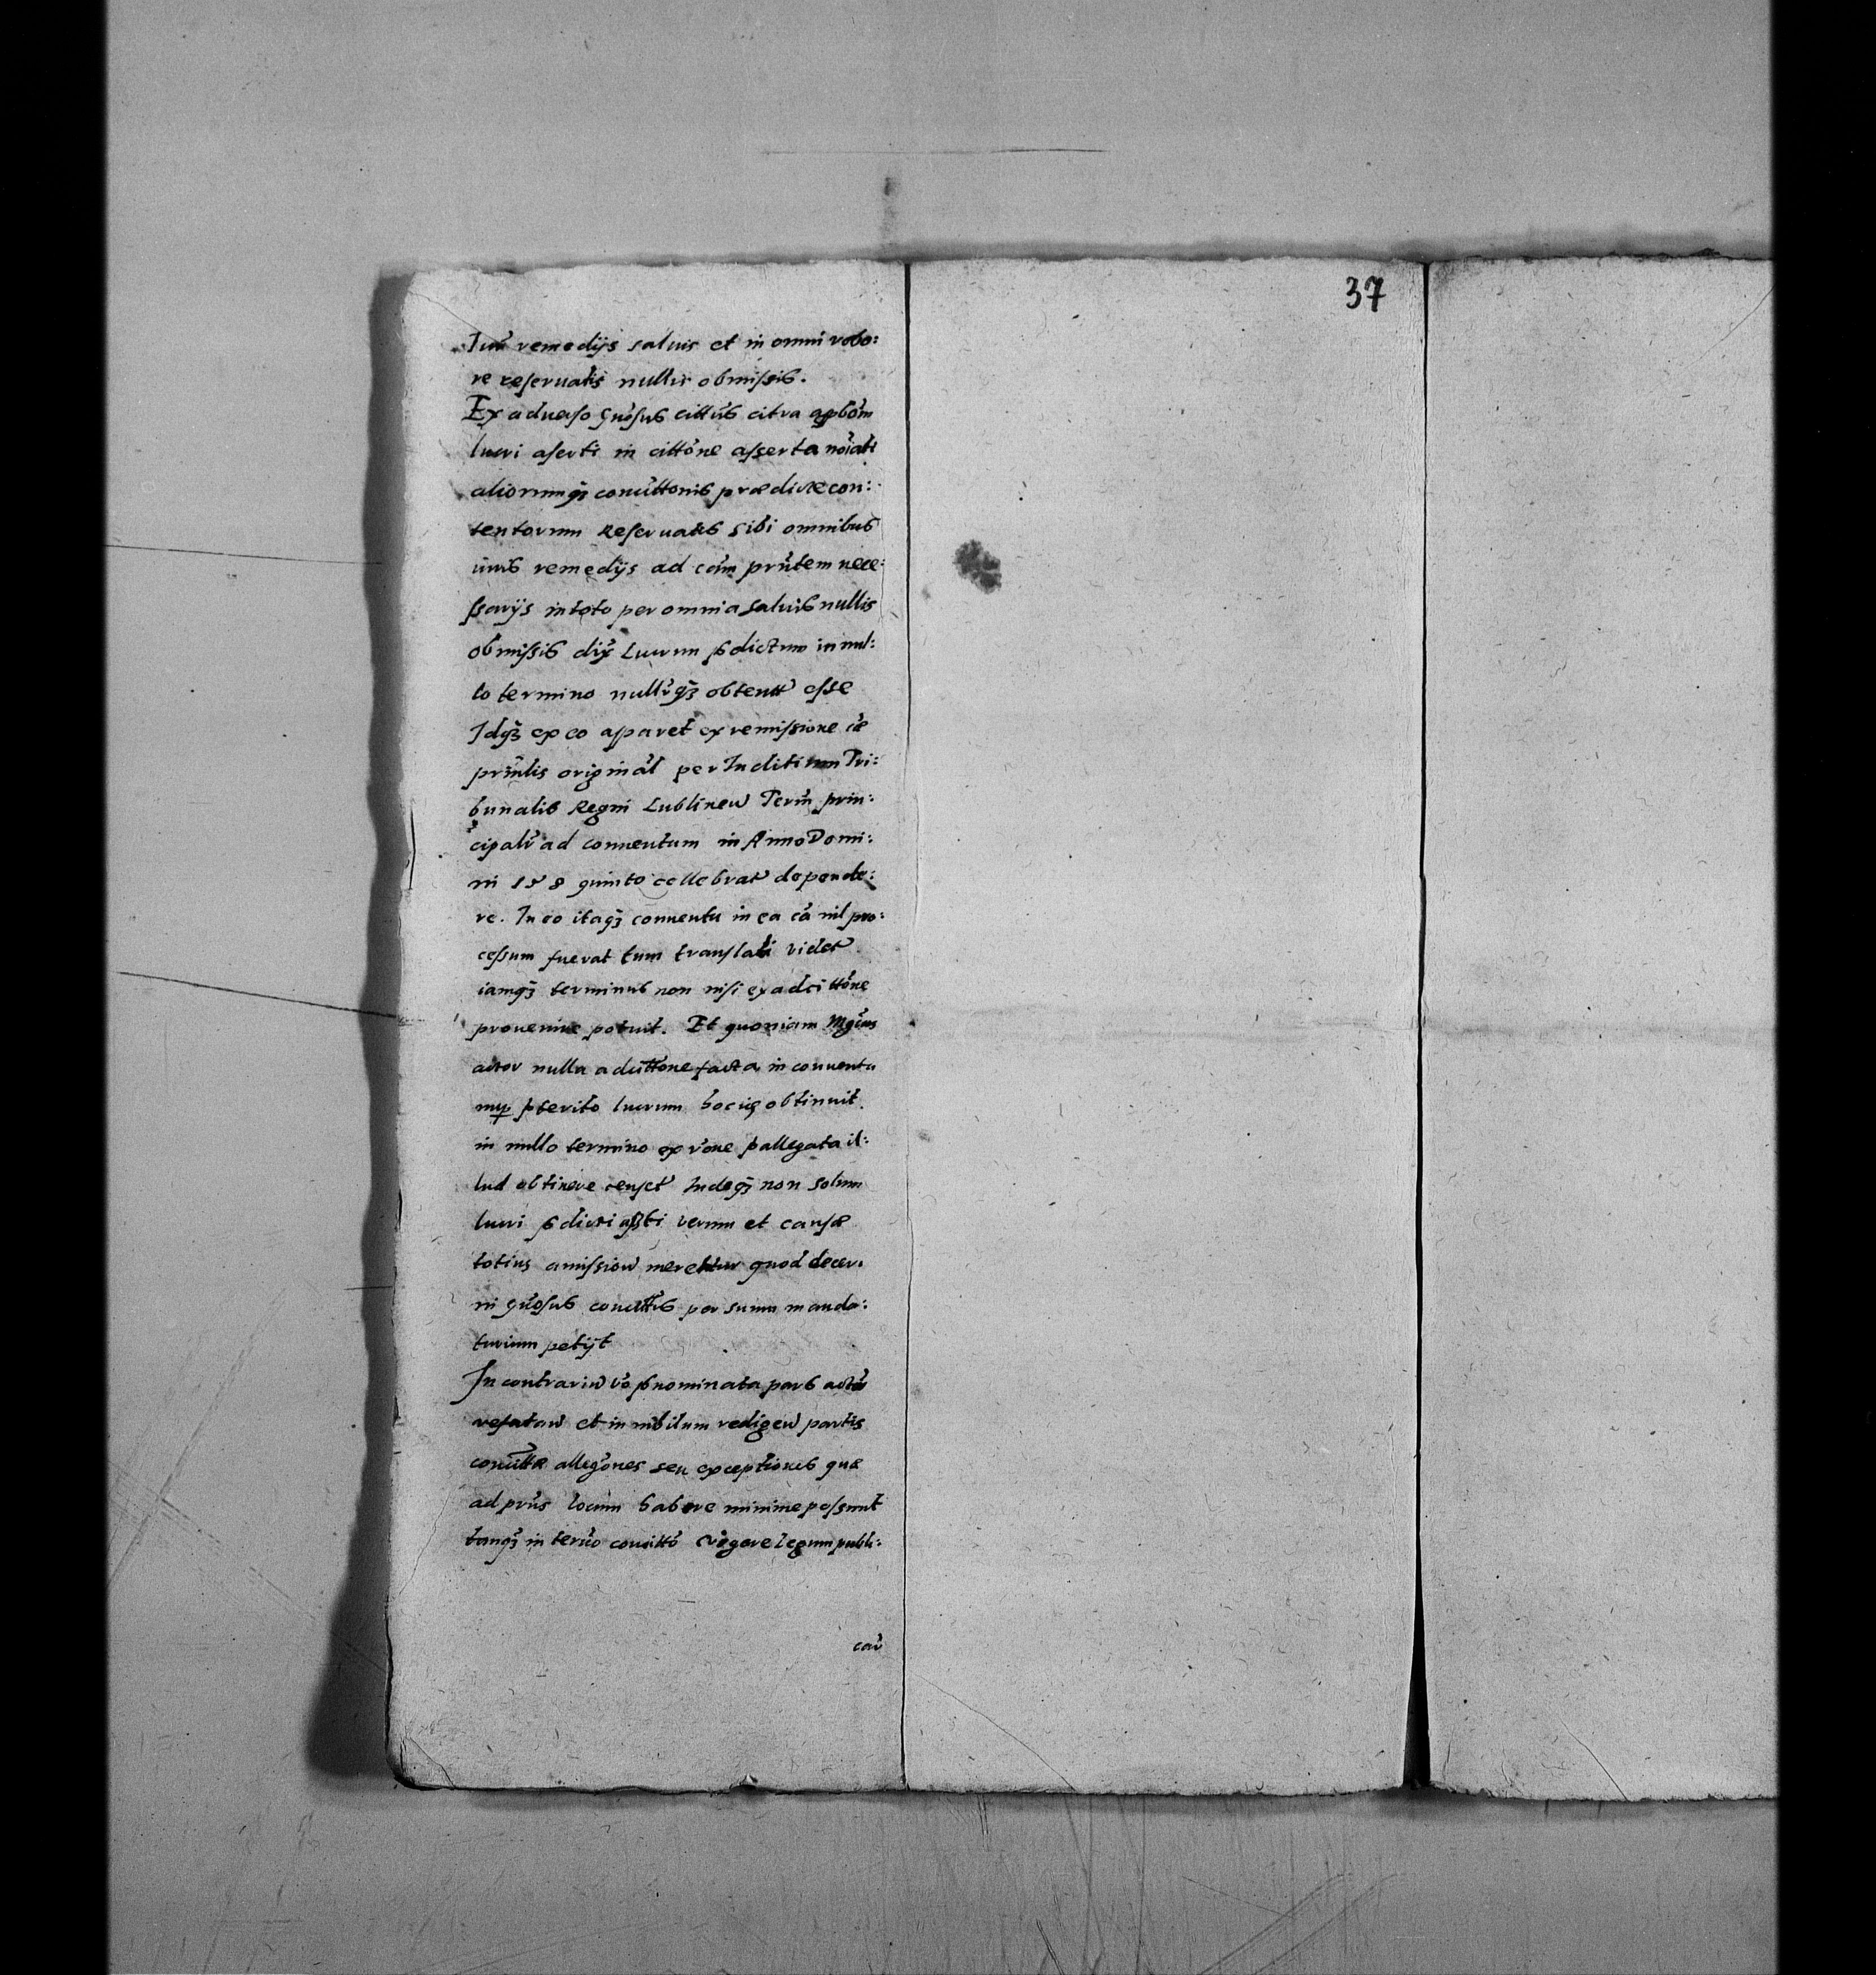 37
Iur̃ remedijs saluis et in omni robo:
re reseruatis nullis obmissis.
Ex aduerso citra
lucri aserti in citt̃one asserta nõiati
aliorumq̃ conuittonis prædictæ con:
tentorum Reseruatis sibi omnibus
iuris remedijs ad cãm prñtem nece:
ssarijs in toto per omnia saluis nullis
obmissis dix̃ Lucrum p̃dictum in nul:
lo termino obtentũ esse
Idq̃ ex eo apparet ex remissione cæ
prñtis originãl per Iuditium Tri:
bunalis Regni Lublineñ Termĩ prin:
cipalĩ ad conuentum in Anno Domi:
ni 158 quinto cellebrat̃ depende:
re. In eo itaq̃ conuentu in ea cã nil pro:
cessum fuerat tum translati videt̃
iamq̃ terminus non nisi ex adcitt̃one
prouenire potuit. Et quoniam Mgcus
actor nulla adcitt̃one facta in conuentu
nup̃ p̃terito lucrum hocce obtinuit
in nullo termino ex rõne p̃allegata il:
lud obtinere censet̃ Indeq̃ non solum
lucri p̃dicti verum et causæ
totius amissioñ meretur quod decer:
ni per suum manda:
tarium petijt
In contrariũ võ p̃nominata pars actõr
refutañ et in nihilum redigeñ partis
allegõnes seu exceptiones quæ
ad prñs locum habere minime possunt
tanq̃ in terño conuitt̃o vigore legum publi:
carũ